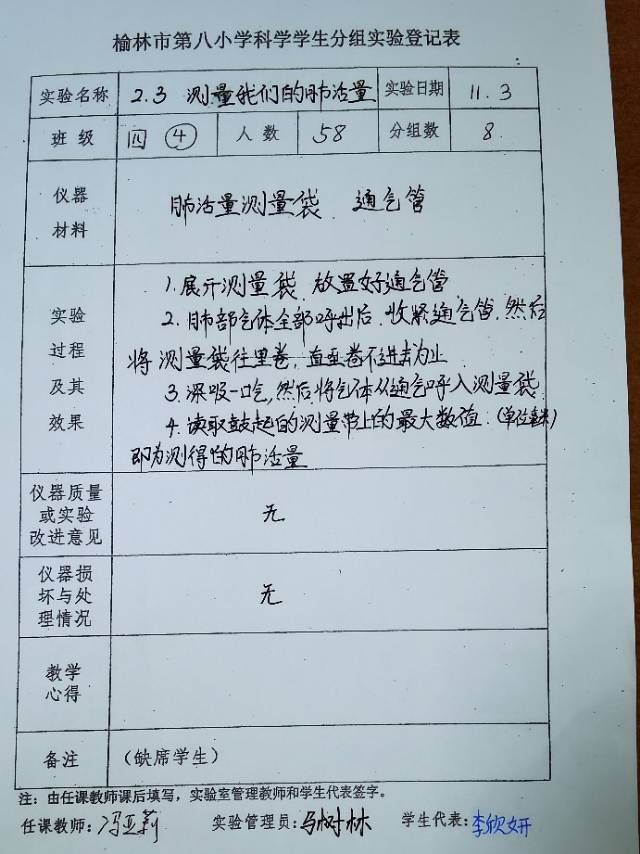 榆林市第八小学科学学生分组实验登记表
实验名称 2.3 测量我们的肺活量 实验日期 11.3
班级 四④ 人数 58 分组数 8
仪器材料 肺活量测量袋 通气管
实验过程及其效果
1.展开测量袋 放置好通气管
2.肺部气体全部呼出后.收紧通气管.然后
将测量袋往里卷,直至卷不进去为止
3.深吸一口气,然后将气体从通气呼入测量袋
4.读取鼓起的测量带上的最大数值.(单位毫升)
即为测得的肺活量
仪器质量或实验改进意见 无
仪器损坏与处理情况 无
教学心得
备注 (缺席学生)
注:由任课教师课后填写,实验室管理教师和学生代表签字。
任课教师:冯亚莉 实验管理员:马树林 学生代表:李欣妍